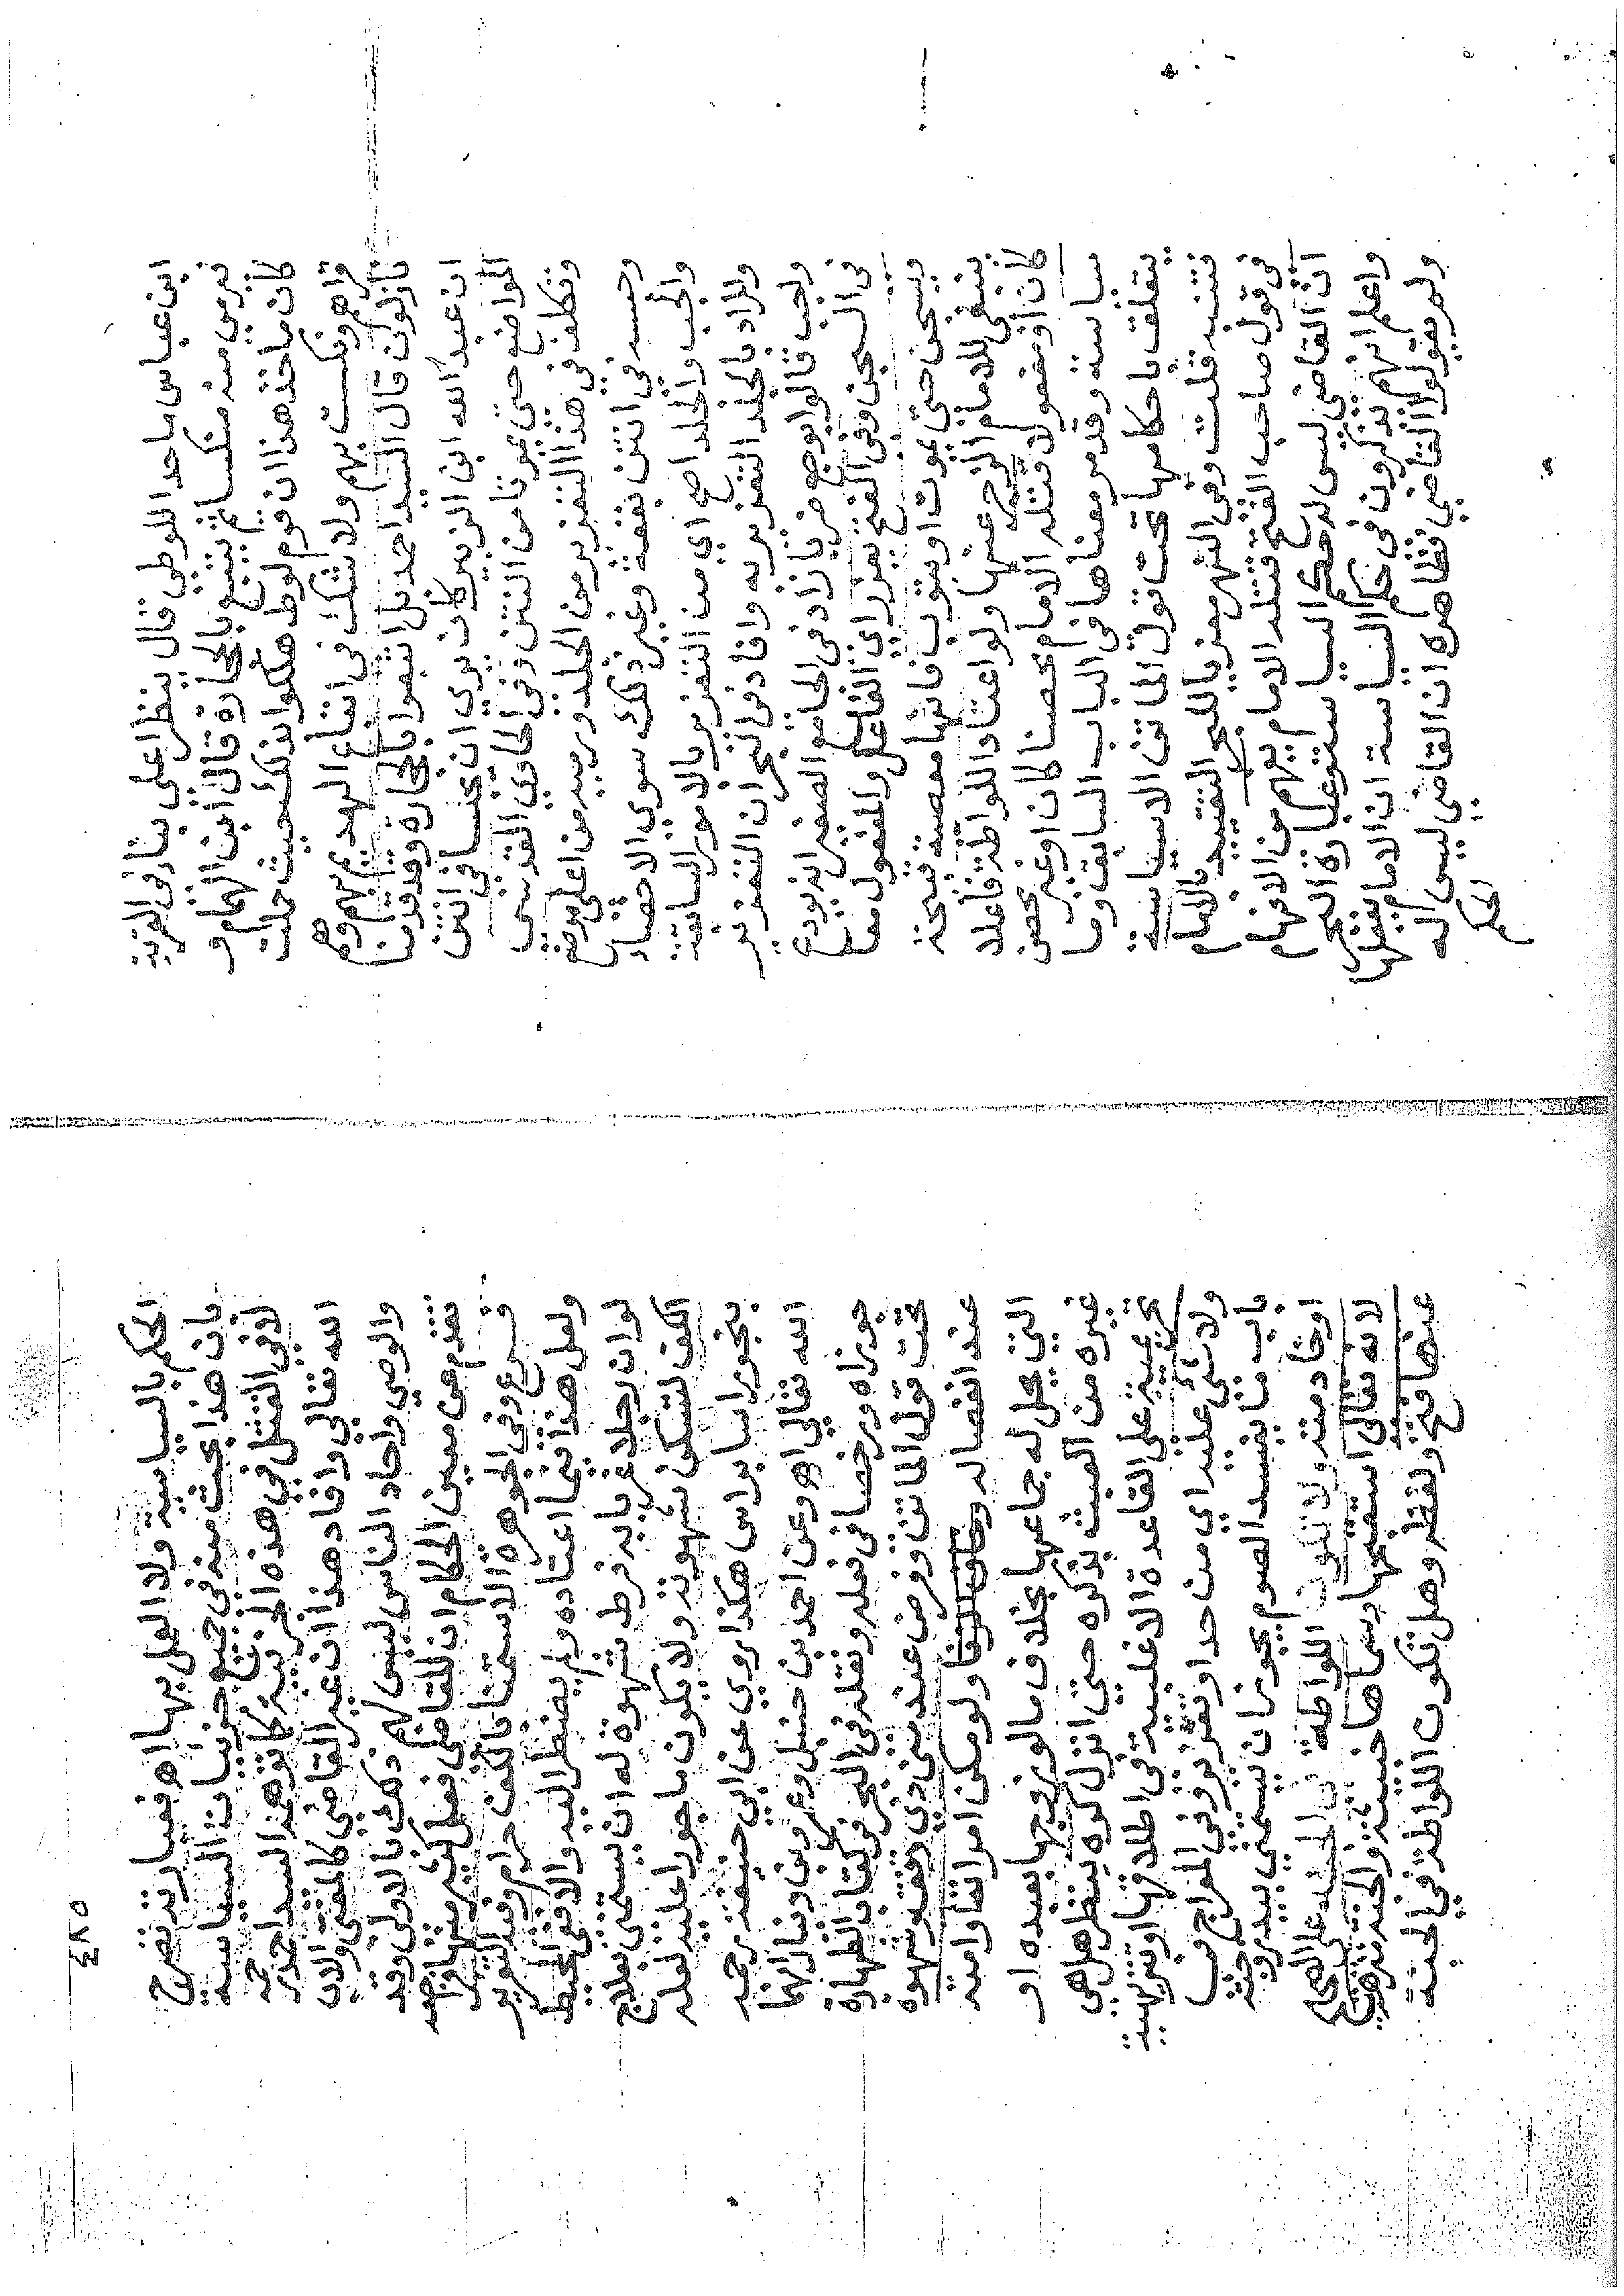 ابن عباس ما حد اللوطي قال ينظر اعلى بناء في القرية
فيرمى منه منكسا ثم يتبع بالحجارة قال ابن الهمام و
كأن مأخذ هذا ان قوم لوط هلكوا بذلك حيث حملت
قراهم ونكست بهم ولا شك في اتباع الهدم بهم وهم
نازلون قال السيد احمد بل اتبعوا بالحجارة وقدمنا
ان عبد الله ابن الزبير كان يرى ان يحبسا في انتن
المواضع حتى يموتا من النتن وفي الحاوي القدسي
وتكلموا في هذا التعزير من الجلد ورميه من اعلى موضع
وحبسه في انتن بقعة وغير ذلك سوى الاخصاء
والجب والجلد اصح اي من التعزير بالامور السابقة
والمراد بالجلد التعزير به وافاد في البحر ان التعزير
ولجب قالوا يوجع ضربا زاد في الجامع الصغير انه يودع
في السجن وفي الفتح يعزر اي الفاعل والمفعول معا
ويسجن حتى يموت او يتوب فانها معصية قبيحة
ينبغي للامام الزجر عنها ولو اعتاد اللواطة فاعلا
كان او مفعولا قتله الامام محصنا كان او غير محصن
سياسة وقد مر معناها في الباب السابق وما
يتعلق باحكامها تحت قول الماتن الا سياسة
فتنبه قلت وفي النهر معزيا للبحر التقييد بالامام
في قول صاحب الفتح قتله الامام يفهم من الافهام
ان القاضي ليس له حكم السياسة وعبارة البحر
واعلم انهم يذكرون في حكم السياسة ان الامام يفعلها
ولم يقولوا القاضي فظاهره ان القاضي ليس له
الحكم
٤٨٥
الحكم بالسياسة ولا العمل بها اهـ فعبارته تصرح
بان هذا بحث منه في جميع جزئيات السياسة
لا في القتل في هذه الجزئية كما توهمه السيد احمد رحمه
الله تعالى وافاد هذا ان غير القاضي كالمفتي والاب
والوصي واحاد الناس ليس لهم ذلك بالاولى وقد
تقدم عن معين الحكام ان للقاضي فعل كثير منها فراجعه
فـــرع وفي الجوهرة الاستمنا بالكف حرام وفيه التعزير
ولعل هذا فيما اعتاده ولم يضطر اليه والا ففي المحيط
لو ان رجلا عزبا به فرط شهوة له ان يستمني بعلاج
الكف لتسكن شهوته ولا يكون ماجورا عليه لعله
ينجو راسا براس هكذا روي عن ابي حنيفة رحمه
الله تعالى اهـ وعن احمد بن حنبل وعمرو بن دينار انهما
جوزاه ورخصا في فعله ونقله في البحر في كتاب الطهارة
تحت قول الماتن وفرض عند مني ذي دفق وشهوة
عند انفصاله ولو مكن امراته او امته
التي يحل له جماعها بخلاف ما لو زوجها بعبده او
غيره من العبث بذكره حتى انزل كره ينظر هل هي
تحريمية على القاعدة الاغلبية في اطلاقها او تنزيهية
ولا شئ عليه اي من حد او تعزير وفي المعراج في
باب ما يفسد الصوم يجوز ان يستمني بيد زوجته
او خادمته ولا تكون اللواطة في الجنة على الصحيح
لانه تعالى استقبحها وسماها خبيثة والجنة منزهة
عنها فتح ولفظه وهل تكون اللواطة في الجنة